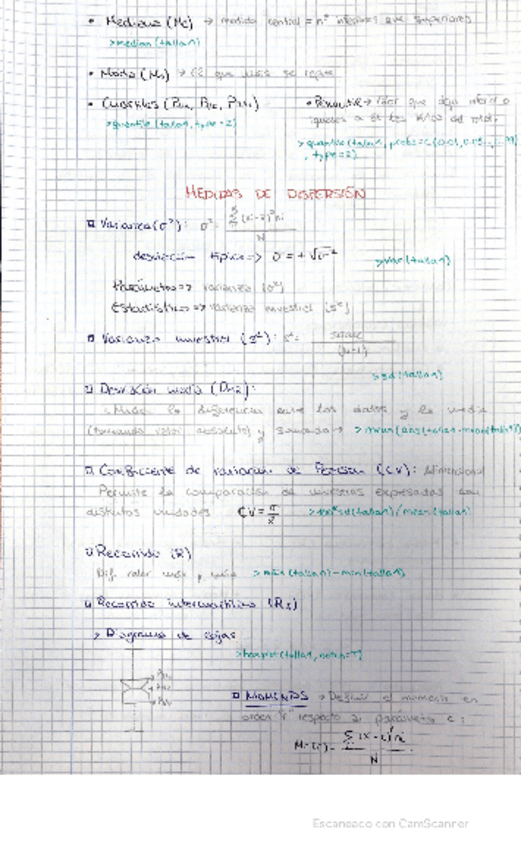 • Mediana (Me) → medida central = nº inferiores que superiores
>median(talla1)
• Moda (Mo) → El que más se repite
• Cuartiles (P1/4, P1/2, P3/4)
• Percentil → valor que deja inferior o
iguales a él los del total
>quantile(talla1, type=2)
>quantile(talla1, probs=c(0.01, 0.05, ..., 0.99)
, type=2)
MEDIDAS DE DISPERSIÓN
Varianza (σ²): σ² = Σ(xi-x̄)²ni / N
desviación típica => σ = +√σ²
>var(talla1)
Parámetros => varianza (σ²)
Estadístico => varianza muestral (s²)
Varianza muestral (s²): s² = / (N-1)
>sd(talla1)
Desviación media (Dm):
la diferencia entre los datos y la media
(tomando valor absoluto) y sumado → >mean(abs(talla1-mean(talla1))
Coeficiente de variación de Pearson (CV): Adimensional
Permite la comparación de muestras expresadas con
distintas unidades CV = σ/x̄ >100*sd(talla1)/mean(talla1)
Recorrido (R)
Dif. valor máx y mín >max(talla1)-min(talla1)
Recorrido intercuartílico (RI)
> Diagrama de cajas
>boxplot(talla1, notch=T)
P3/4
P1/2
P1/4
MOMENTOS → Definir el momento en
orden r respecto al parámetro c:
Mr(c) = Σ(xi-c)^r ni / N
Escaneado con CamScanner